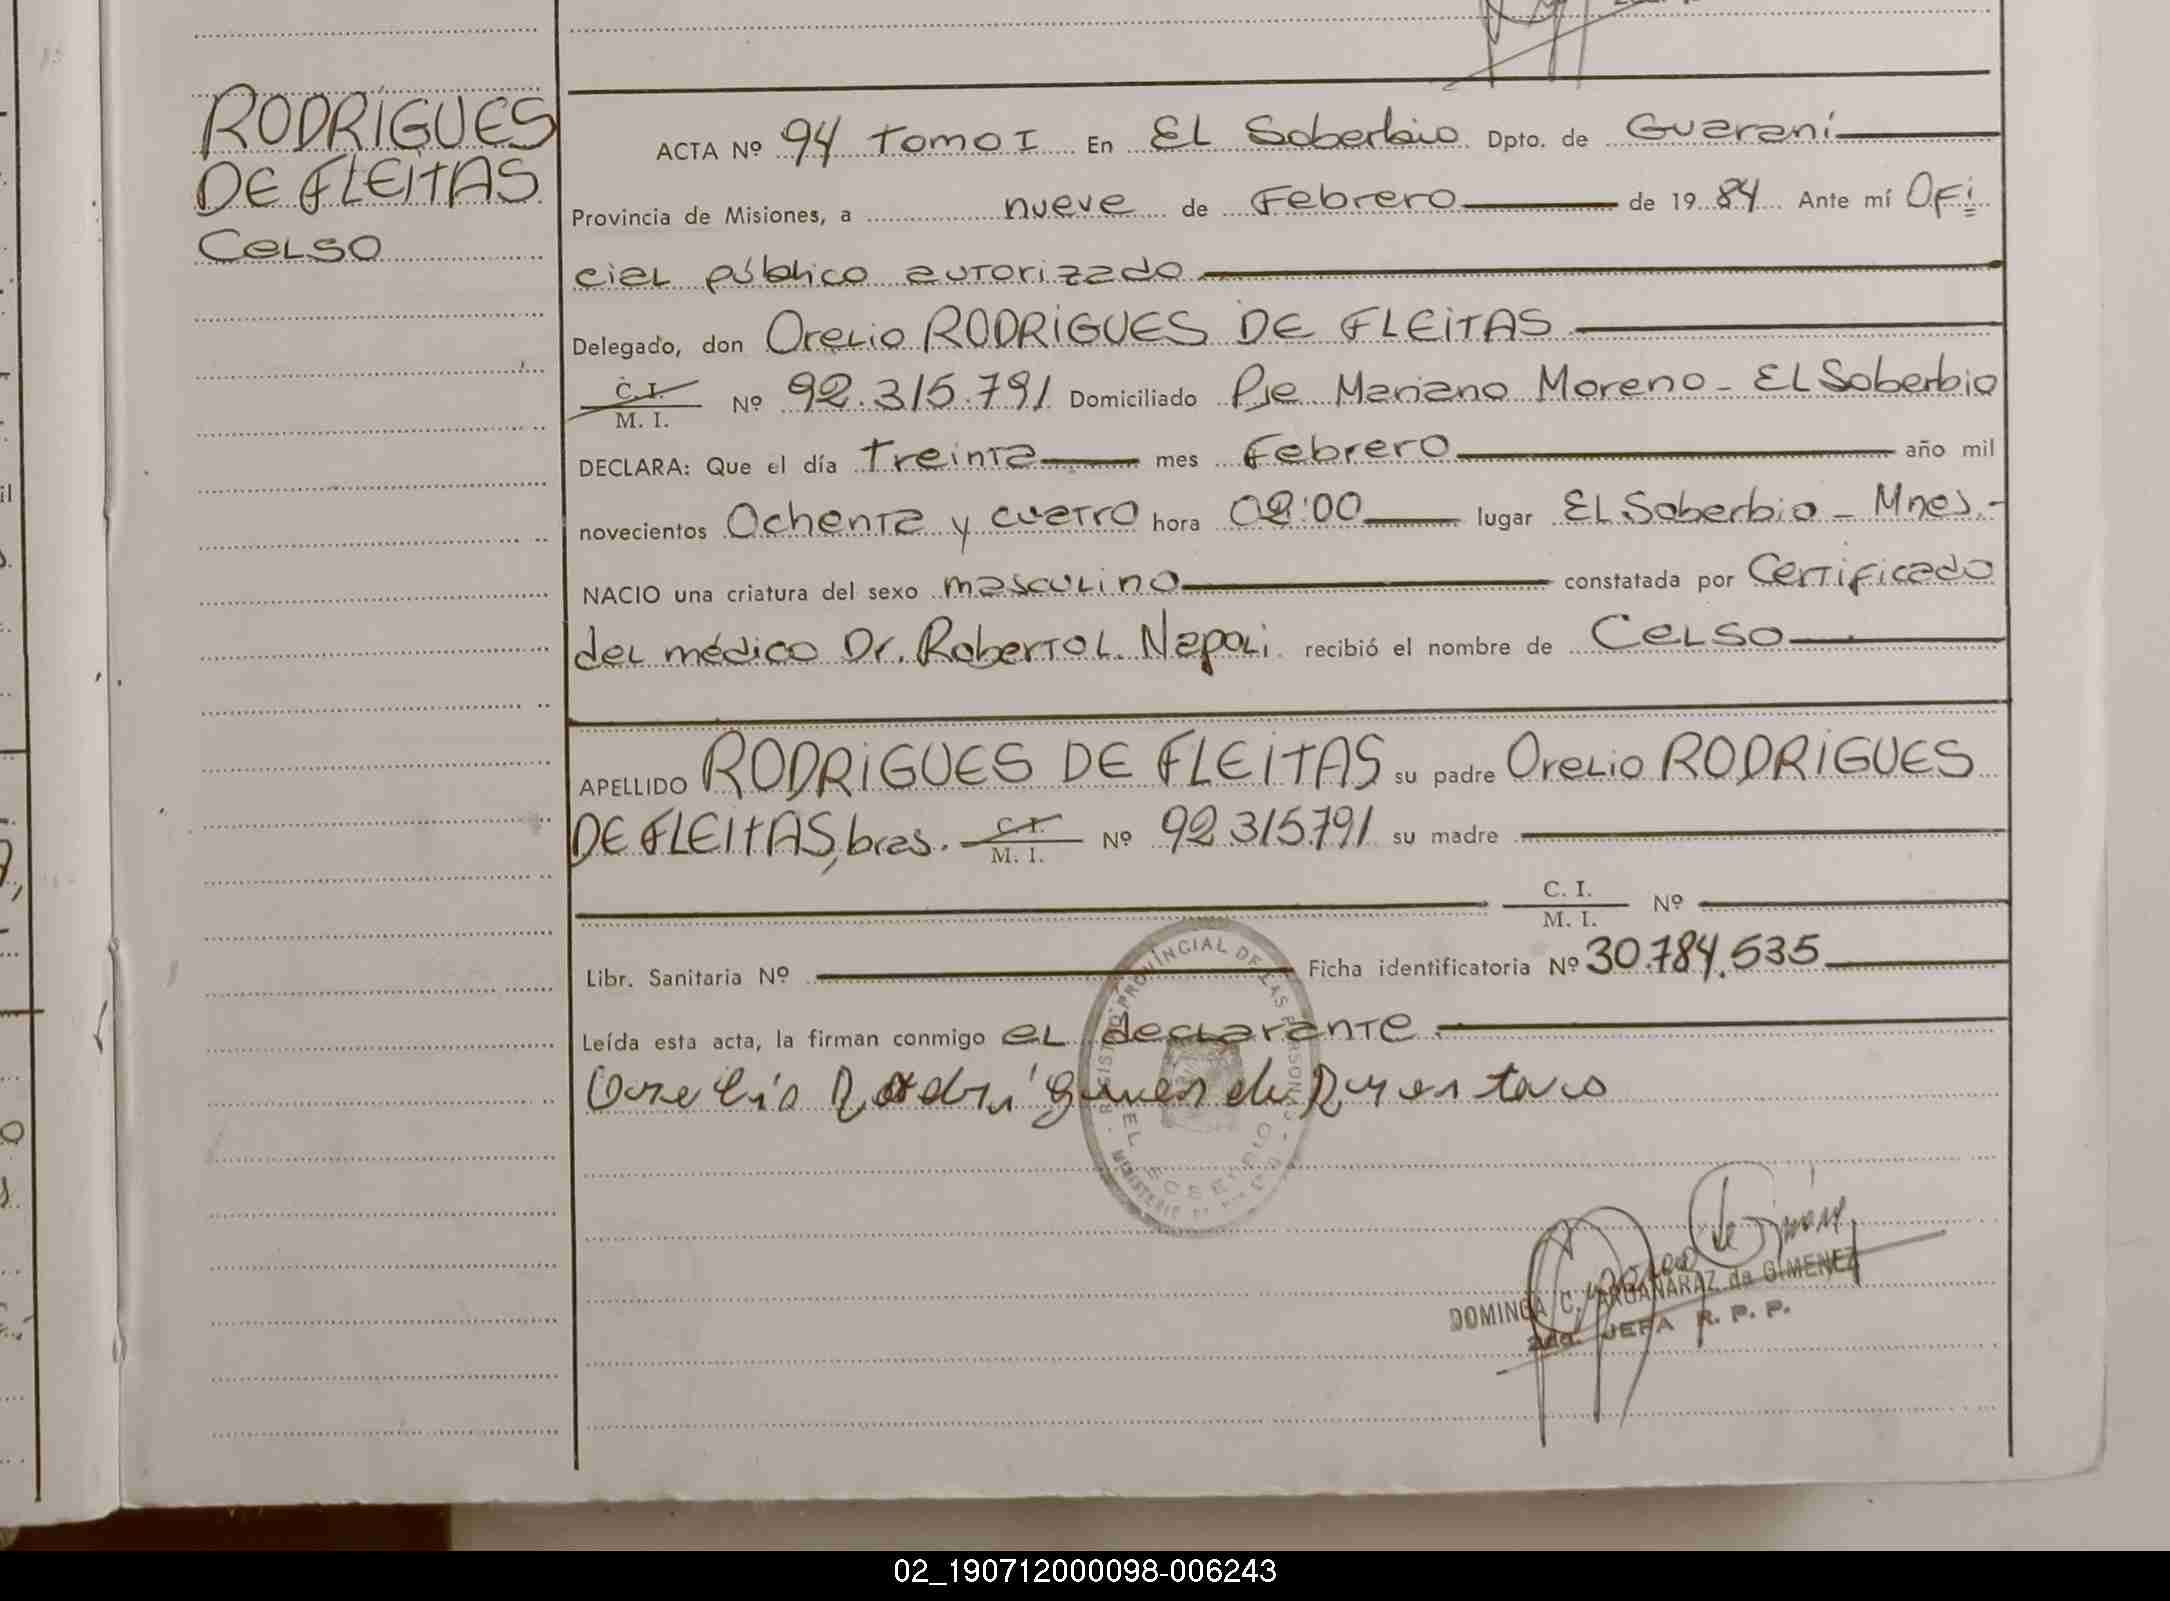 RODRIGUES
DE FLEITAS
CELSO
ACTA Nº 94 Tomo I En EL Soberbio Dpto. de Guaraní
Provincia de Misiones, a nueve de Febrero de 1984 Ante mí Ofi
cial público autorizado
Delegado, don Orelio RODRIGUES DE FLEITAS
C. I.
M. I. Nº 92.315.791 Domiciliado Pje Mariano Moreno - EL Soberbio
DECLARA: Que el día Treinta mes Febrero año mil
novecientos Ochenta y cuatro hora 02:00 lugar EL Soberbio - Mnes.-
NACIO una criatura del sexo masculino constatada por Certificado
del médico Dr. Roberto L. Napoli recibió el nombre de CELSO
APELLIDO RODRIGUES DE FLEITAS su padre Orelio RODRIGUES
DE FLEITAS, bras. C. I.
M. I. Nº 92.315.791 su madre
C. I.
M. I. Nº
Libr. Sanitaria Nº Ficha identificatoria Nº 30.784.535
Leída esta acta, la firman conmigo el declarante
REGISTRO PROVINCIAL DE LAS PERSONAS
DOMINGA C. ARGAÑARAZ de GIMENEZ
2da. JEFA R. P. P.
02_190712000098-006243